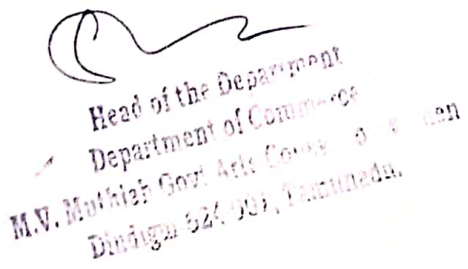 Head of the Department
Department of Commerce
M.V. Muthiah Govt Arts
Dindigul 624 001, Tamilnadu.